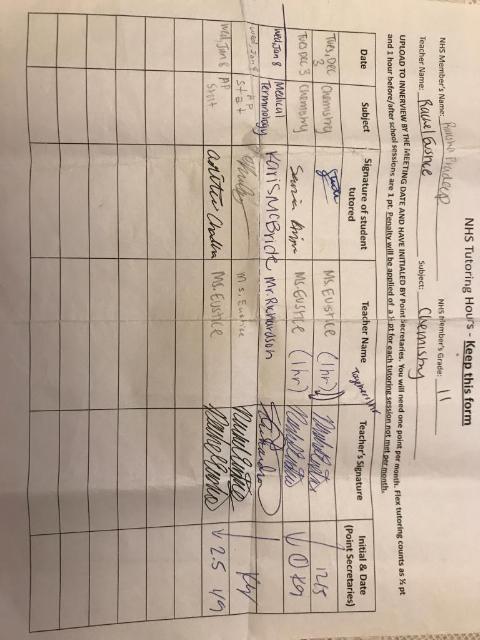 NHS Tutoring Hours - Keep this form
NHS Member's Name: Pradeep NHS Member's Grade: 11
Teacher Name: Rachel Eustice Subject: Chemistry
UPLOAD TO INNERVIEW BY THE MEETING DATE AND HAVE INITIALED BY Point Secretaries. You will need one point per month. Flex tutoring counts as ½ pt
and 1 hour before/after school sessions are 1 pt. Penalty will be applied of a ½ pt for each tutoring session not met per month.
Date Subject Signature of student tutored Teacher Name Teacher's Signature Initial & Date (Point Secretaries)
Tues, Dec 3 Chemistry Ms. Eustice (1hr) 12/5
Tues Dec 3 Chemistry Ms. Eustice (1hr)
Wed, Jan 8 Medical Terminology Karis McBride Mr. Richardson
Wed, Jan 8 AP Stat Ms. Eustice
Wed, Jan 8 AP Stat Ms. Eustice .25 1/9